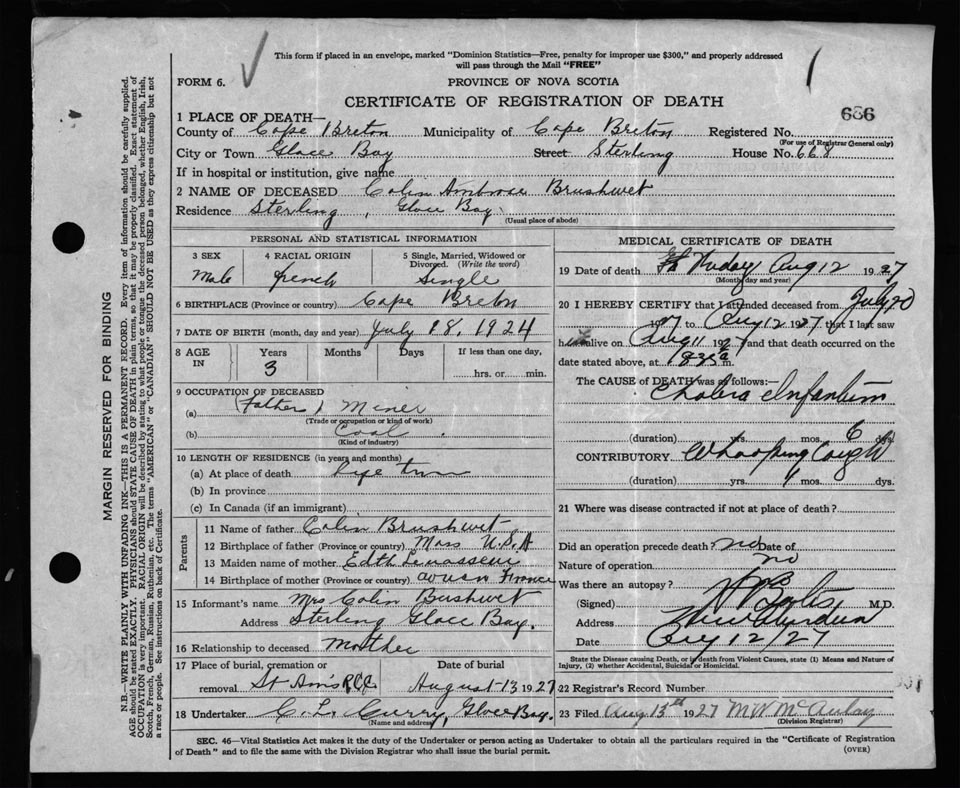 This form if placed in an envelope, marked "Dominion Statistics—Free, penalty for improper use $300," and properly addressed
will pass through the Mail "FREE"
FORM 6.
PROVINCE OF NOVA SCOTIA
CERTIFICATE OF REGISTRATION OF DEATH
686
1 PLACE OF DEATH—
County of Cape Breton Municipality of Cape Breton Registered No.
(For use of Registrar General only)
City or Town Glace Bay Street Sterling House No. 668
If in hospital or institution, give name
2 NAME OF DECEASED Colin Ambrose Brushwet
Residence Sterling, Glace Bay
(Usual place of abode)
PERSONAL AND STATISTICAL INFORMATION
3 SEX 4 RACIAL ORIGIN 5 Single, Married, Widowed or Divorced. (Write the word)
Male french Single
6 BIRTHPLACE (Province or country) Cape Breton
7 DATE OF BIRTH (month, day and year) July 18, 1924
8 AGE IN Years Months Days If less than one day,
3 hrs. or min.
9 OCCUPATION OF DECEASED
(a) (Father) Miner
(Trade or occupation or kind of work)
(b) Coal
(Kind of industry)
10 LENGTH OF RESIDENCE (in years and months)
(a) At place of death life time
(b) In province
(c) In Canada (if an immigrant)
Parents
11 Name of father Colin Brushwet
12 Birthplace of father (Province or country) Mass U.S.A
13 Maiden name of mother Edth
14 Birthplace of mother (Province or country) France
15 Informant's name Mrs Colin Bushwet
Address Sterling Glace Bay.
16 Relationship to deceased Mother
17 Place of burial, cremation or removal St Ann's R.C.C Date of burial August 13 1927
18 Undertaker C. L. Curry, Glace Bay.
(Name and address)
MEDICAL CERTIFICATE OF DEATH
19 Date of death Friday Aug 12 1927
(Month, day and year)
20 I HEREBY CERTIFY that I attended deceased from July 20
1927 to Aug 12 1927 that I last saw
h alive on Aug 11 1927 and that death occurred on the
date stated above, at m.
The CAUSE of DEATH was as follows:—
Cholera Infantum
(duration) yrs. mos. 6 dys.
CONTRIBUTORY Whooping Cough
(duration) yrs. 1 mos. dys.
21 Where was disease contracted if not at place of death?
Did an operation precede death? no Date of
Nature of operation
Was there an autopsy? no
(Signed) M.D.
Address New Aberdeen
Date Aug 12/27
State the Disease causing Death, or in death from Violent Causes, state (1) Means and Nature of
Injury, (2) whether Accidental, Suicidal or Homicidal.
22 Registrar's Record Number
23 Filed Aug 13th 1927 M W McAulay
(Division Registrar)
SEC. 46—Vital Statistics Act makes it the duty of the Undertaker or person acting as Undertaker to obtain all the particulars required in the "Certificate of Registration
of Death" and to file the same with the Division Registrar who shall issue the burial permit.
(OVER)
MARGIN RESERVED FOR BINDING
N.B.—WRITE PLAINLY WITH UNFADING INK—THIS IS A PERMANENT RECORD. Every item of information should be carefully supplied.
AGE should be stated EXACTLY. PHYSICIANS should STATE CAUSE OF DEATH in plain terms, so that it may be properly classified. Exact statement of
OCCUPATION is very important. RACIAL ORIGIN will be described by stating to what people or tongue the deceased person belonged, whether English, Irish,
Scotch, French, German, Russian, Ruthenian, etc. The terms "AMERICAN" or "CANADIAN" SHOULD NOT BE USED as they express citizenship but not
a race or people. See instructions on back of Certificate.